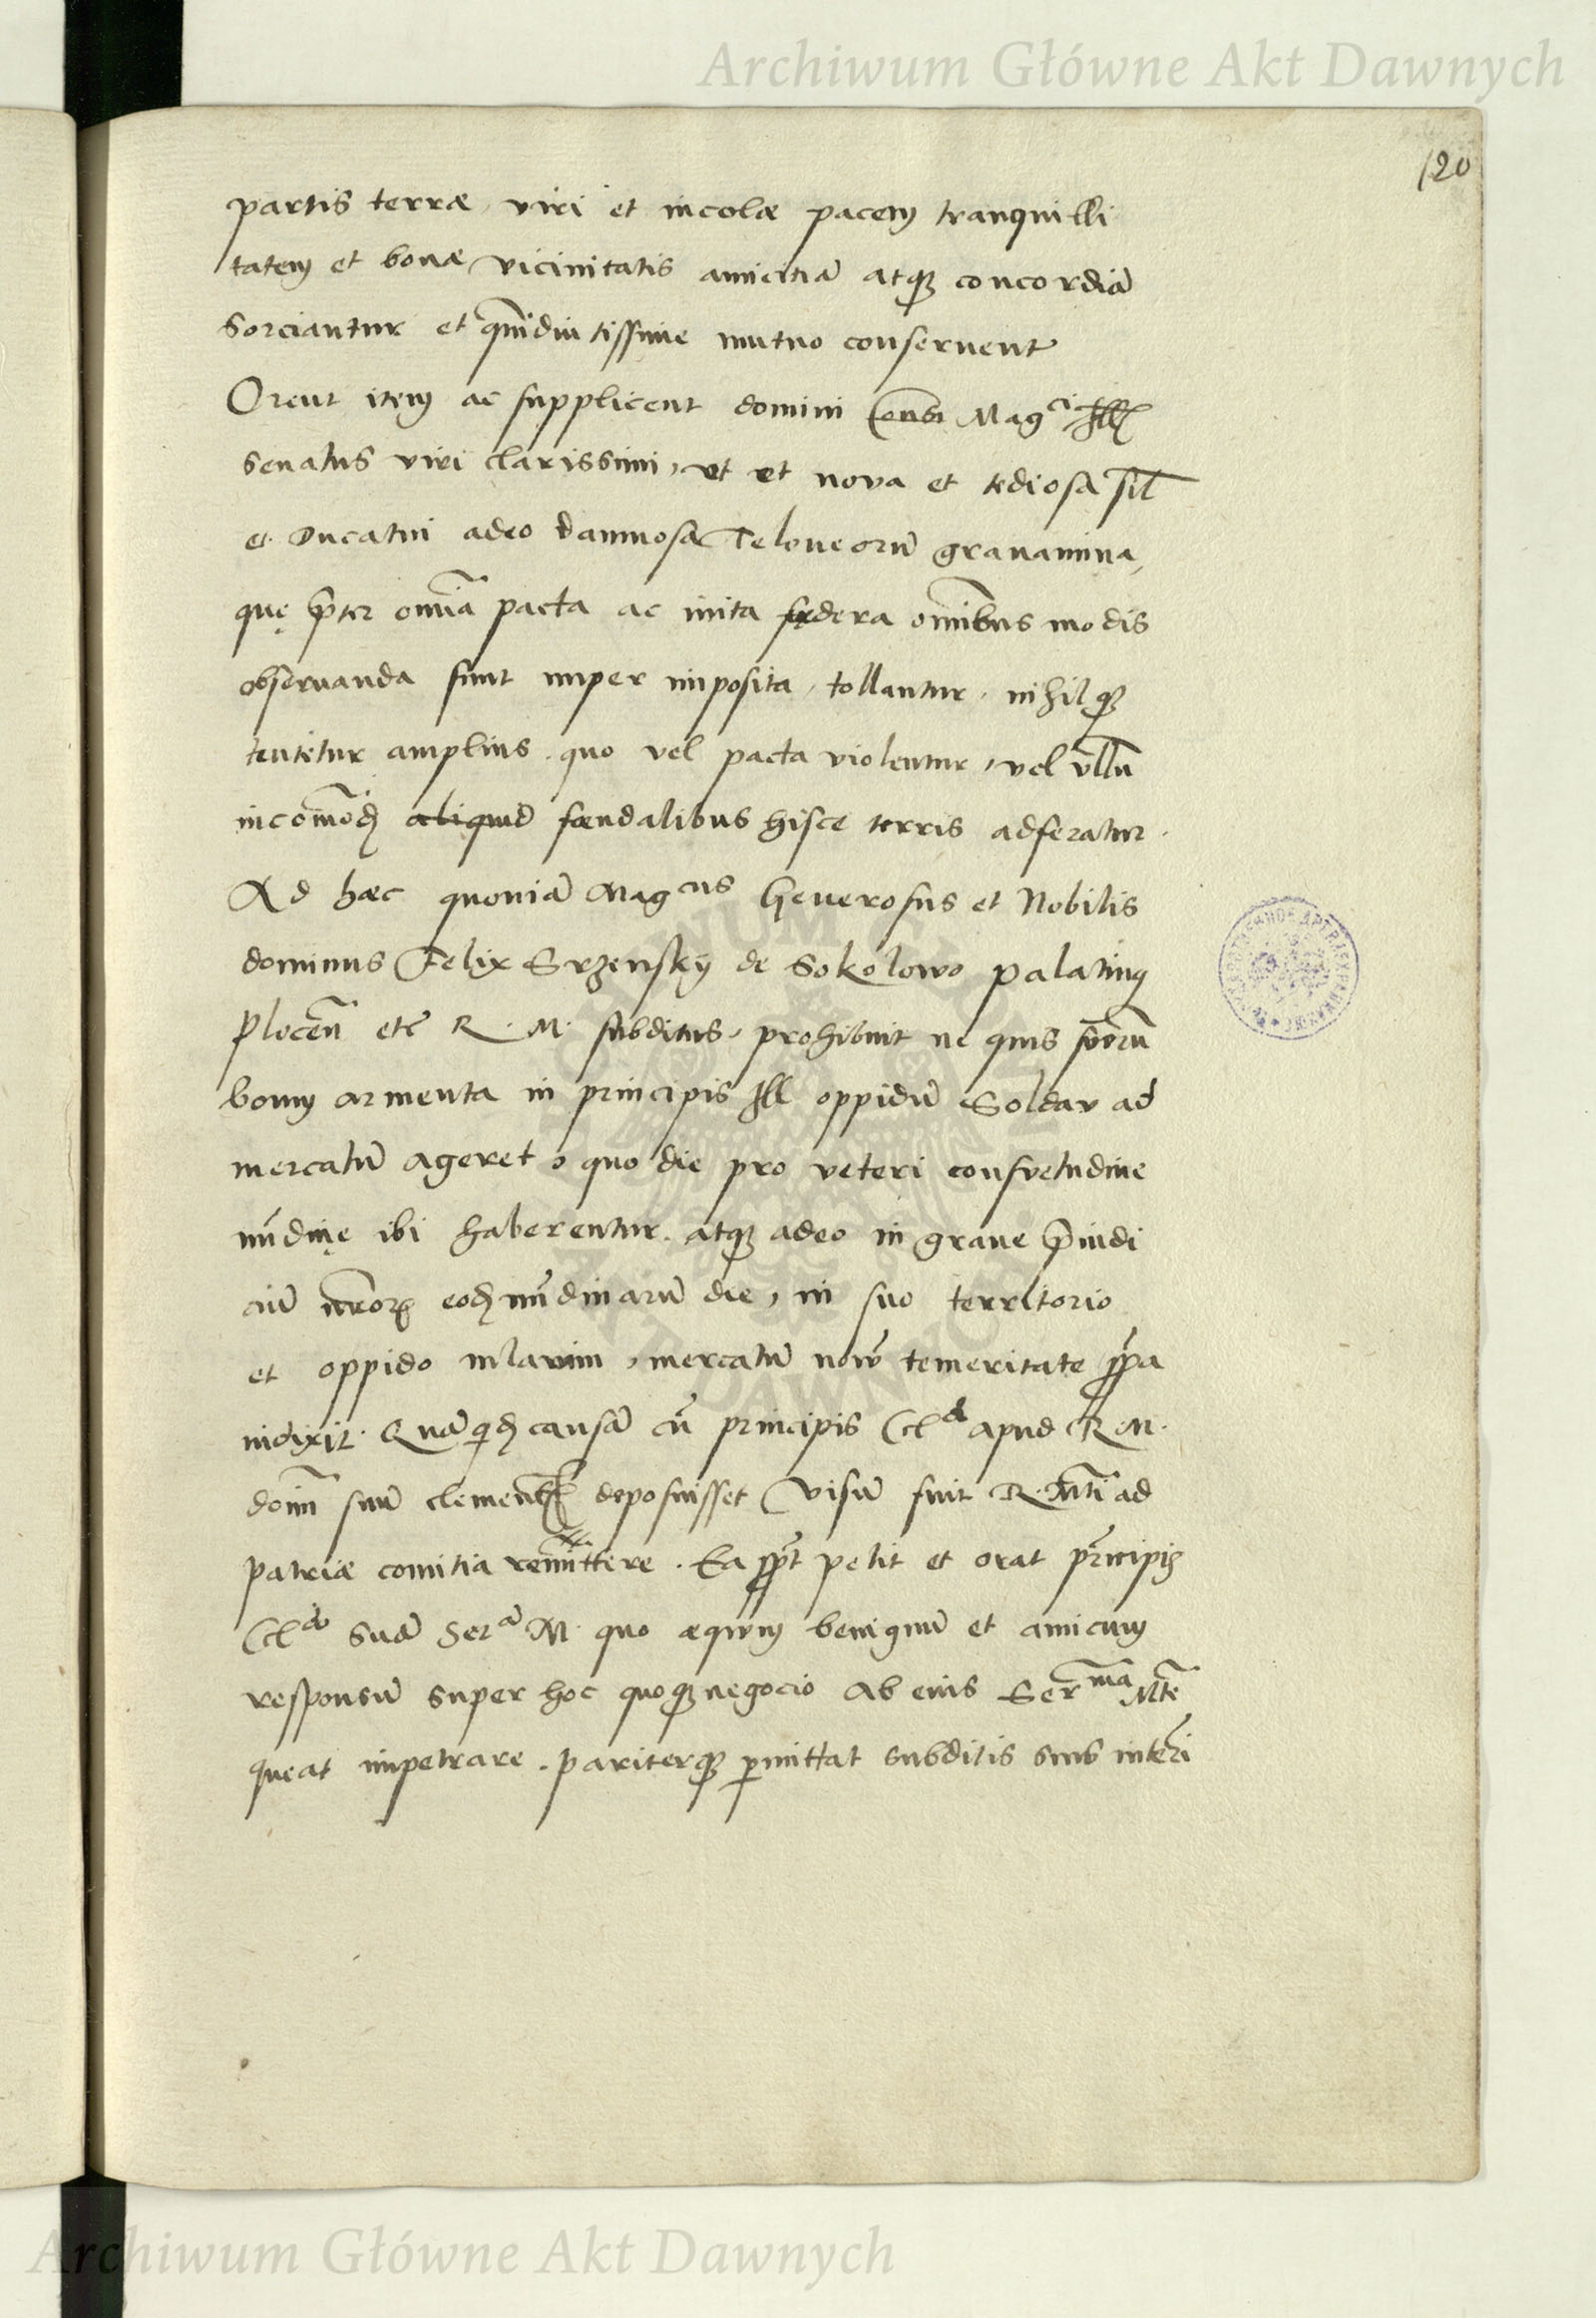 Archiwum Główne Akt Dawnych
120
partis terræ viri et incolæ pacem tranquilli
tatem et bonæ vicinitatis amicitiā atq₃ concordiā
sorciantur et qm̄diutissime mutuo conseruent
Orent item ac supplicent domini Mag^ci Ill
senatus viri clarissimi, ut et nova et tediosa sil̄
et Ducatui adeo damnosa Teloneorū grauamina,
quę p̄ter om̄ia pacta ac inita fœdera om̄ibus modis
obseruanda sunt nuper imposita, tollantur, nihilq₃
tentētur amplius. quo vel pacta violentur, vel vllū
incōmodū aliquid fœudalibus hisce terris adferatur.
Ad hæc quoniā Mag^cus Generosus et Nobilis
dominus Felix Srzensky de Sokolowo palatinꝯ
plocen̄ etc̄ R. M. subditus, prohibuit ne quis suorū
boum armenta in principis Ill oppidū Soldav ad
mercatū ageret quo die pro veteri consvetudine
nūdinę ibi haberentur. atq₃ adeo in graue p̄iudi
ciū nr̄orꝝ eodē nūdinarū die, in suo territorio
et oppido mlavim, mercatū nouū temeritate ꝓp̄a
indixit. Quā qdē causā cū principis Cel^do apud R. M.
dom̄ suū clemen deposuisset Visū fuit R. M̄ti ad
patriæ comitia remittere. Ea ꝓpt̄ petit et orat principis
Cel^do suā Ser^a M. quo æquum benignū et amicum
responsū super hoc quoq₃ negocio ab eius Ser^ma M̄te
queat impetrare. pariterq₃ ꝑmittat subditis suis interī
Archiwum Główne Akt Dawnych